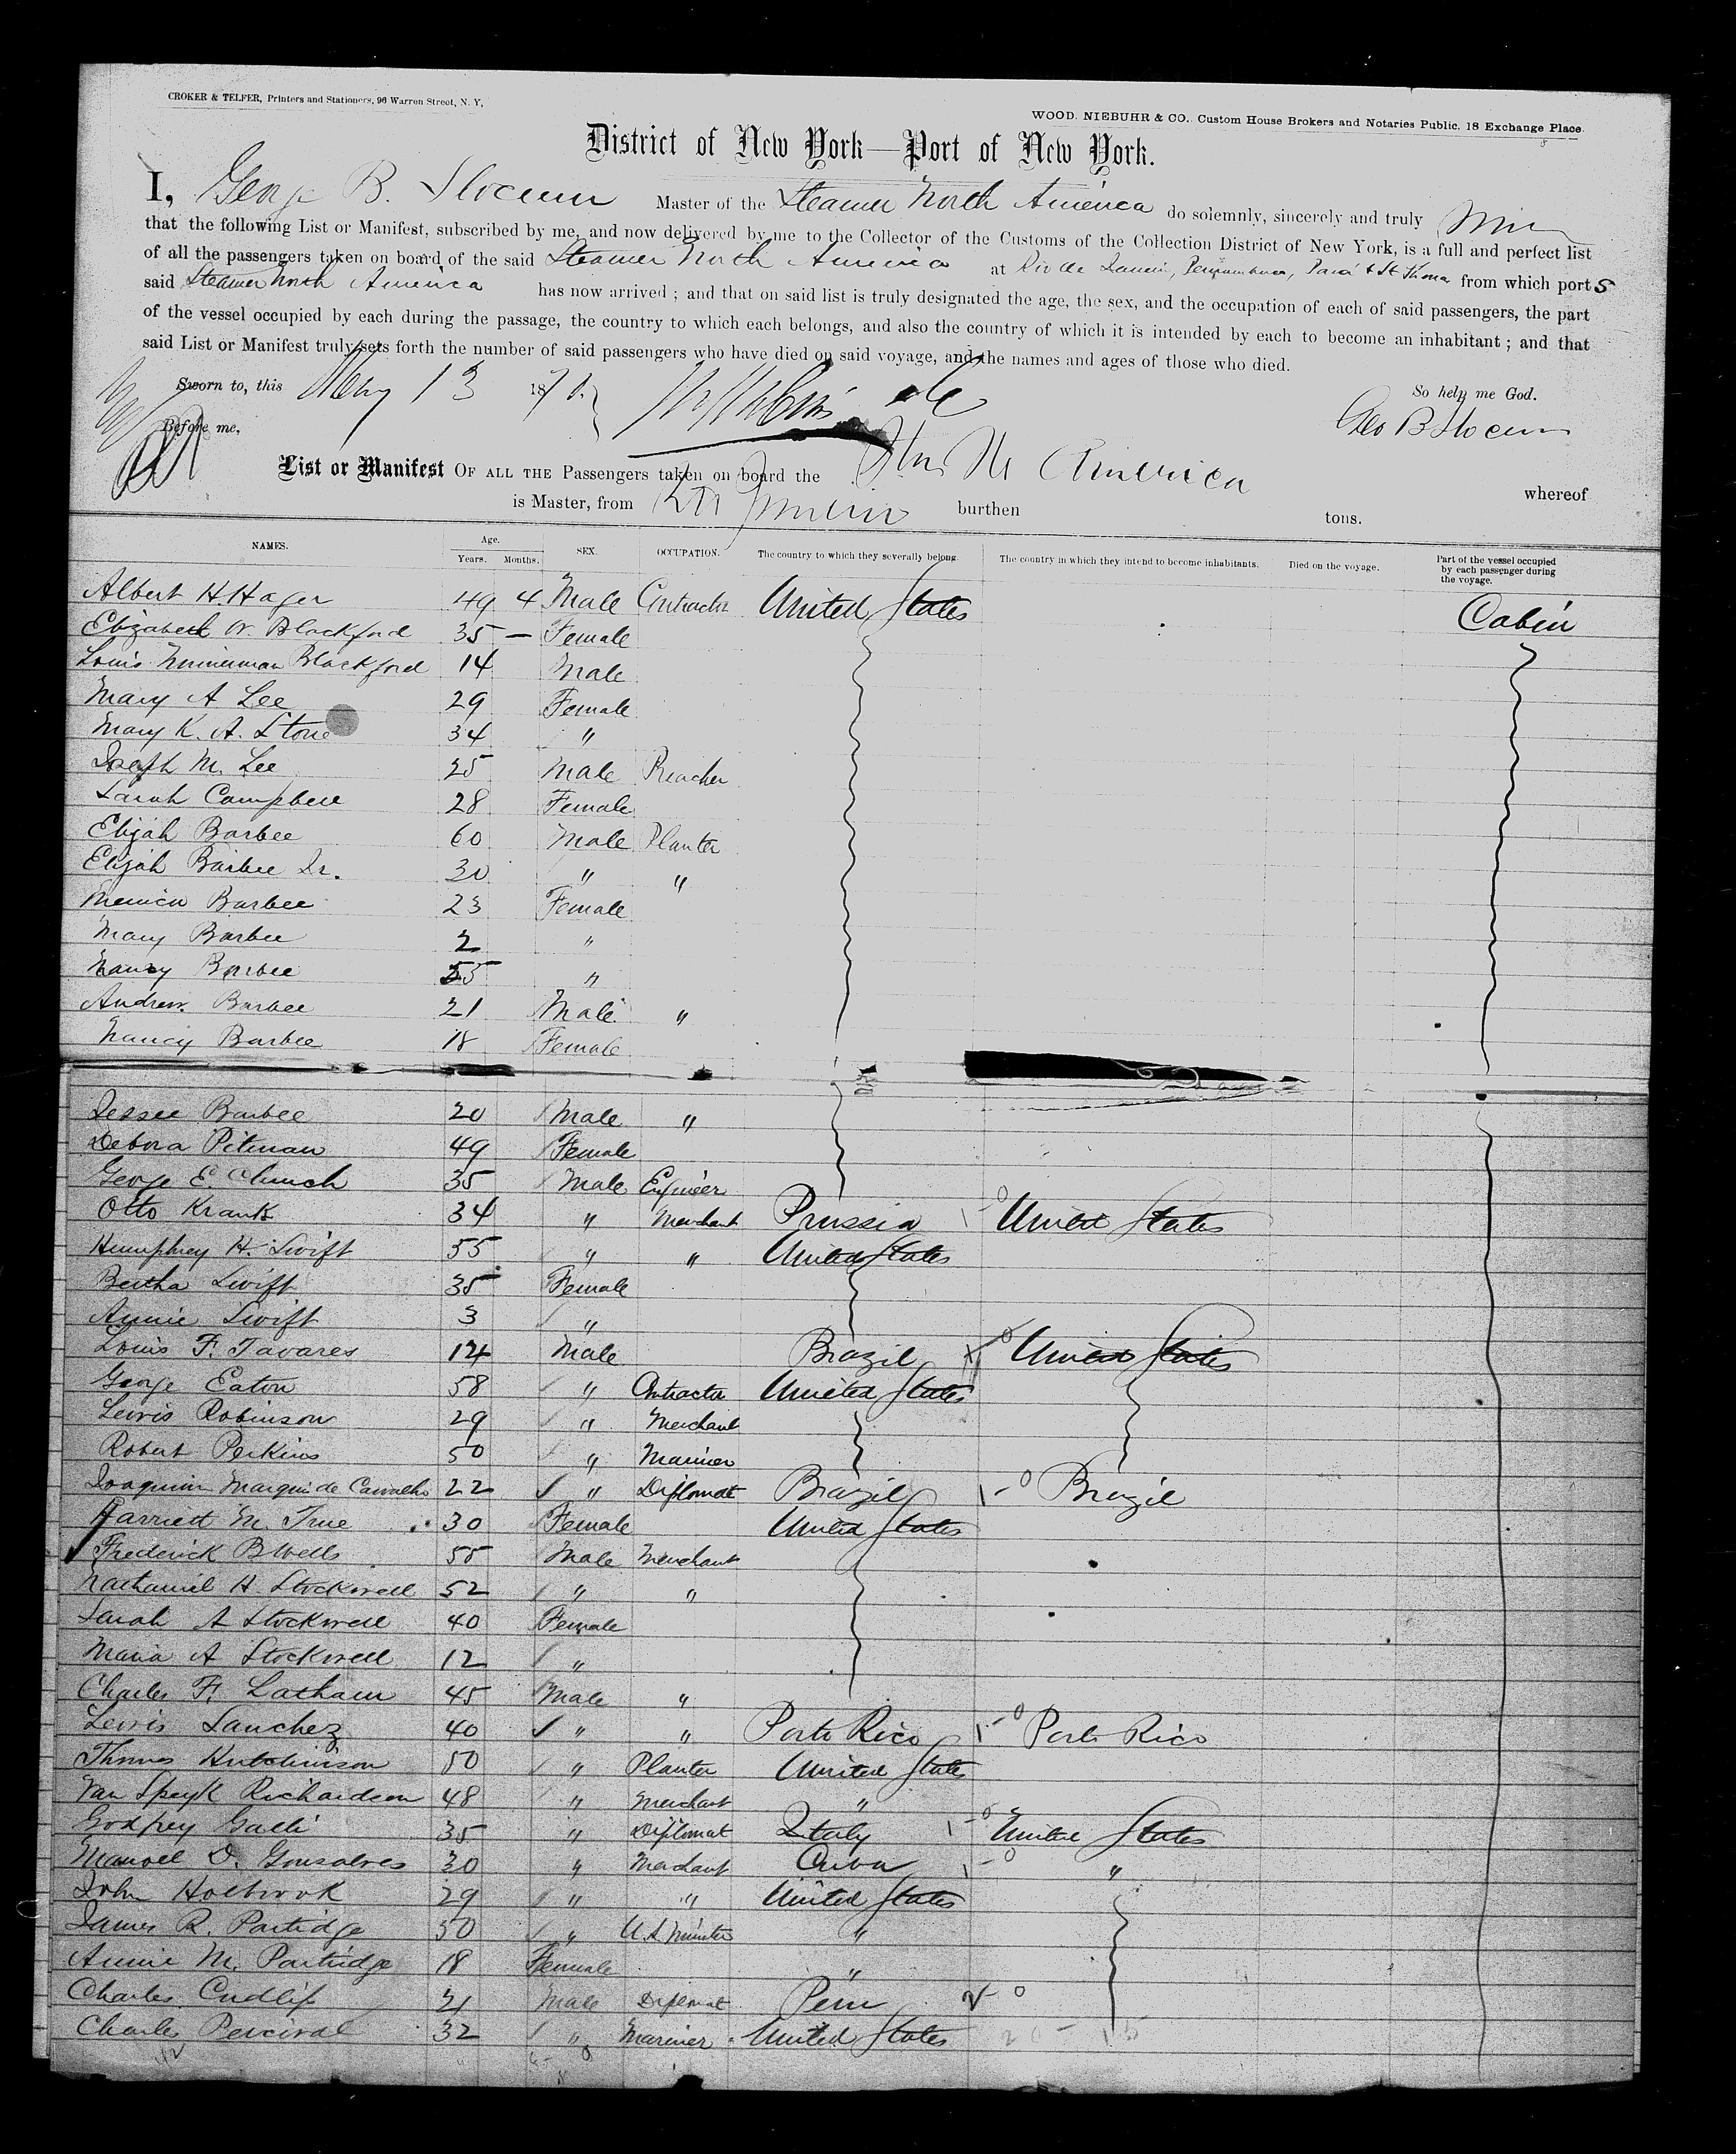 CROKER & TELFER, Printers and Stationers, 96 Warren Street, N. Y,
WOOD. NIEBUHR & CO. Custom House Brokers and Notaries Public. 18 Exchange Place.
District of New York—Port of New York.
I, George B. Slocum Master of the Steamer North America do solemnly, sincerely and truly
that the following List or Manifest, subscribed by me, and now delivered by me to the Collector of the Customs of the Collection District of New York, is a full and perfect list
of all the passengers taken on board of the said Steamer North America at Rio de Janeiro, Pernambuco, Para & St Thomas from which ports
said Steamer North America has now arrived ; and that on said list is truly designated the age, the sex, and the occupation of each of said passengers, the part
of the vessel occupied by each during the passage, the country to which each belongs, and also the country of which it is intended by each to become an inhabitant ; and that
said List or Manifest truly sets forth the number of said passengers who have died on said voyage, and the names and ages of those who died.
Sworn to, this May 13 187
So help me God.
Before me,
Geo B Slocum
List or Manifest OF ALL THE Passengers taken on board the Str N America
whereof
is Master, from Rio Janeiro burthen tons.
NAMES. Age. Years. Months. SEX. OCCUPATION. The country to which they severally belong. The country in which they intend to become inhabitants. Died on the voyage. Part of the vessel occupied by each passenger during the voyage.
Albert H. Hager 49 4 Male Contractor United States Cabin
Elizabeth N. Blackford 35 — Female
Louis Blackford 14 Male
Mary A Lee 29 Female
Mary K. A. Stone 34 "
Joseph M. Lee 25 Male Preacher
Sarah Campbell 28 Female
Elijah Barbee 60 Male Planter
Elijah Barbee Jr. 30 " "
Barbee 23 Female
Mary Barbee 2 "
Nancy Barbee 55 "
Andrew Barbee 21 Male "
Nancy Barbee 18 Female
Jessee Barbee 20 Male "
Debora Pitman 49 Female
George E. Church 35 Male Engineer
Otto Krank 34 " Merchant Prussia United States
Humphrey H. Swift 55 " " United States
Bertha Swift 35 Female
Annie Swift 3 "
Louis F. Tavares 14 Male Brazil United States
George Eaton 58 " Contractor United States
Lewis Robinson 29 " Merchant
Robert Perkins 50 " Mariner
Joaquim Marqui de Carvalho 22 " Diplomat Brazil Brazil
Harriett M. True 30 Female United States
Frederick B Wells 55 Male Merchant
Nathaniel H Stockwell 52 " "
Sarah A Stockwell 40 Female
Maria A Stockwell 12 "
Charles F. Latham 45 Male "
Lewis Sanchez 40 " " Porto Rico Porto Rico
Thomas Hutchinson 50 " Planter United States
Van Speyk Richardson 48 " Merchant "
Godfrey Galli 35 " Diplomat Italy United States
Manoel D. Gonsalves 30 " Merchant Cuba "
John Holbrook 29 " " United States
James R. Partidge 50 " U.S Minister "
Annie M. Partridge 18 Female "
Charles Cudlip 21 Male Diplomat Peru
Charles Percival 32 " Mariner United States